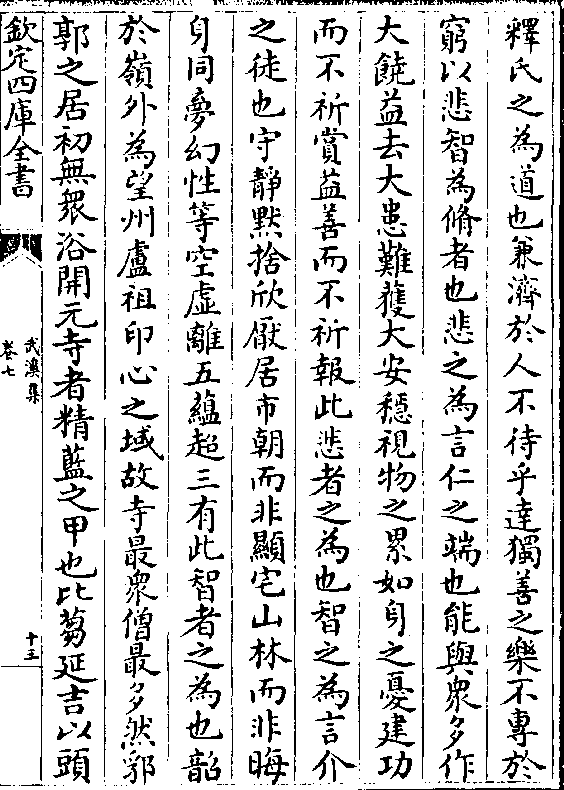 釋氏之為道也兼濟於人不待乎達獨善之樂不専於
窮以悲智為脩者也悲之為言仁之端也能與衆多作
大饒益去大患難獲大安穩視物之累如身之憂建功
而不祈賞益善而不祈報此悲者之為也智之為言介
之徒也守靜黙捨欣厭居市朝而非顯宅山林而非晦
身同夢幻性等空虛離五蘊超三有此智者之為也韶
於嶺外為望州盧祖印心之域故寺最衆僧最多然郛
郭之居初無衆浴開元寺者精藍之甲也比芻延吉以頭
欽定四庫全書
武溪集
卷七
十三